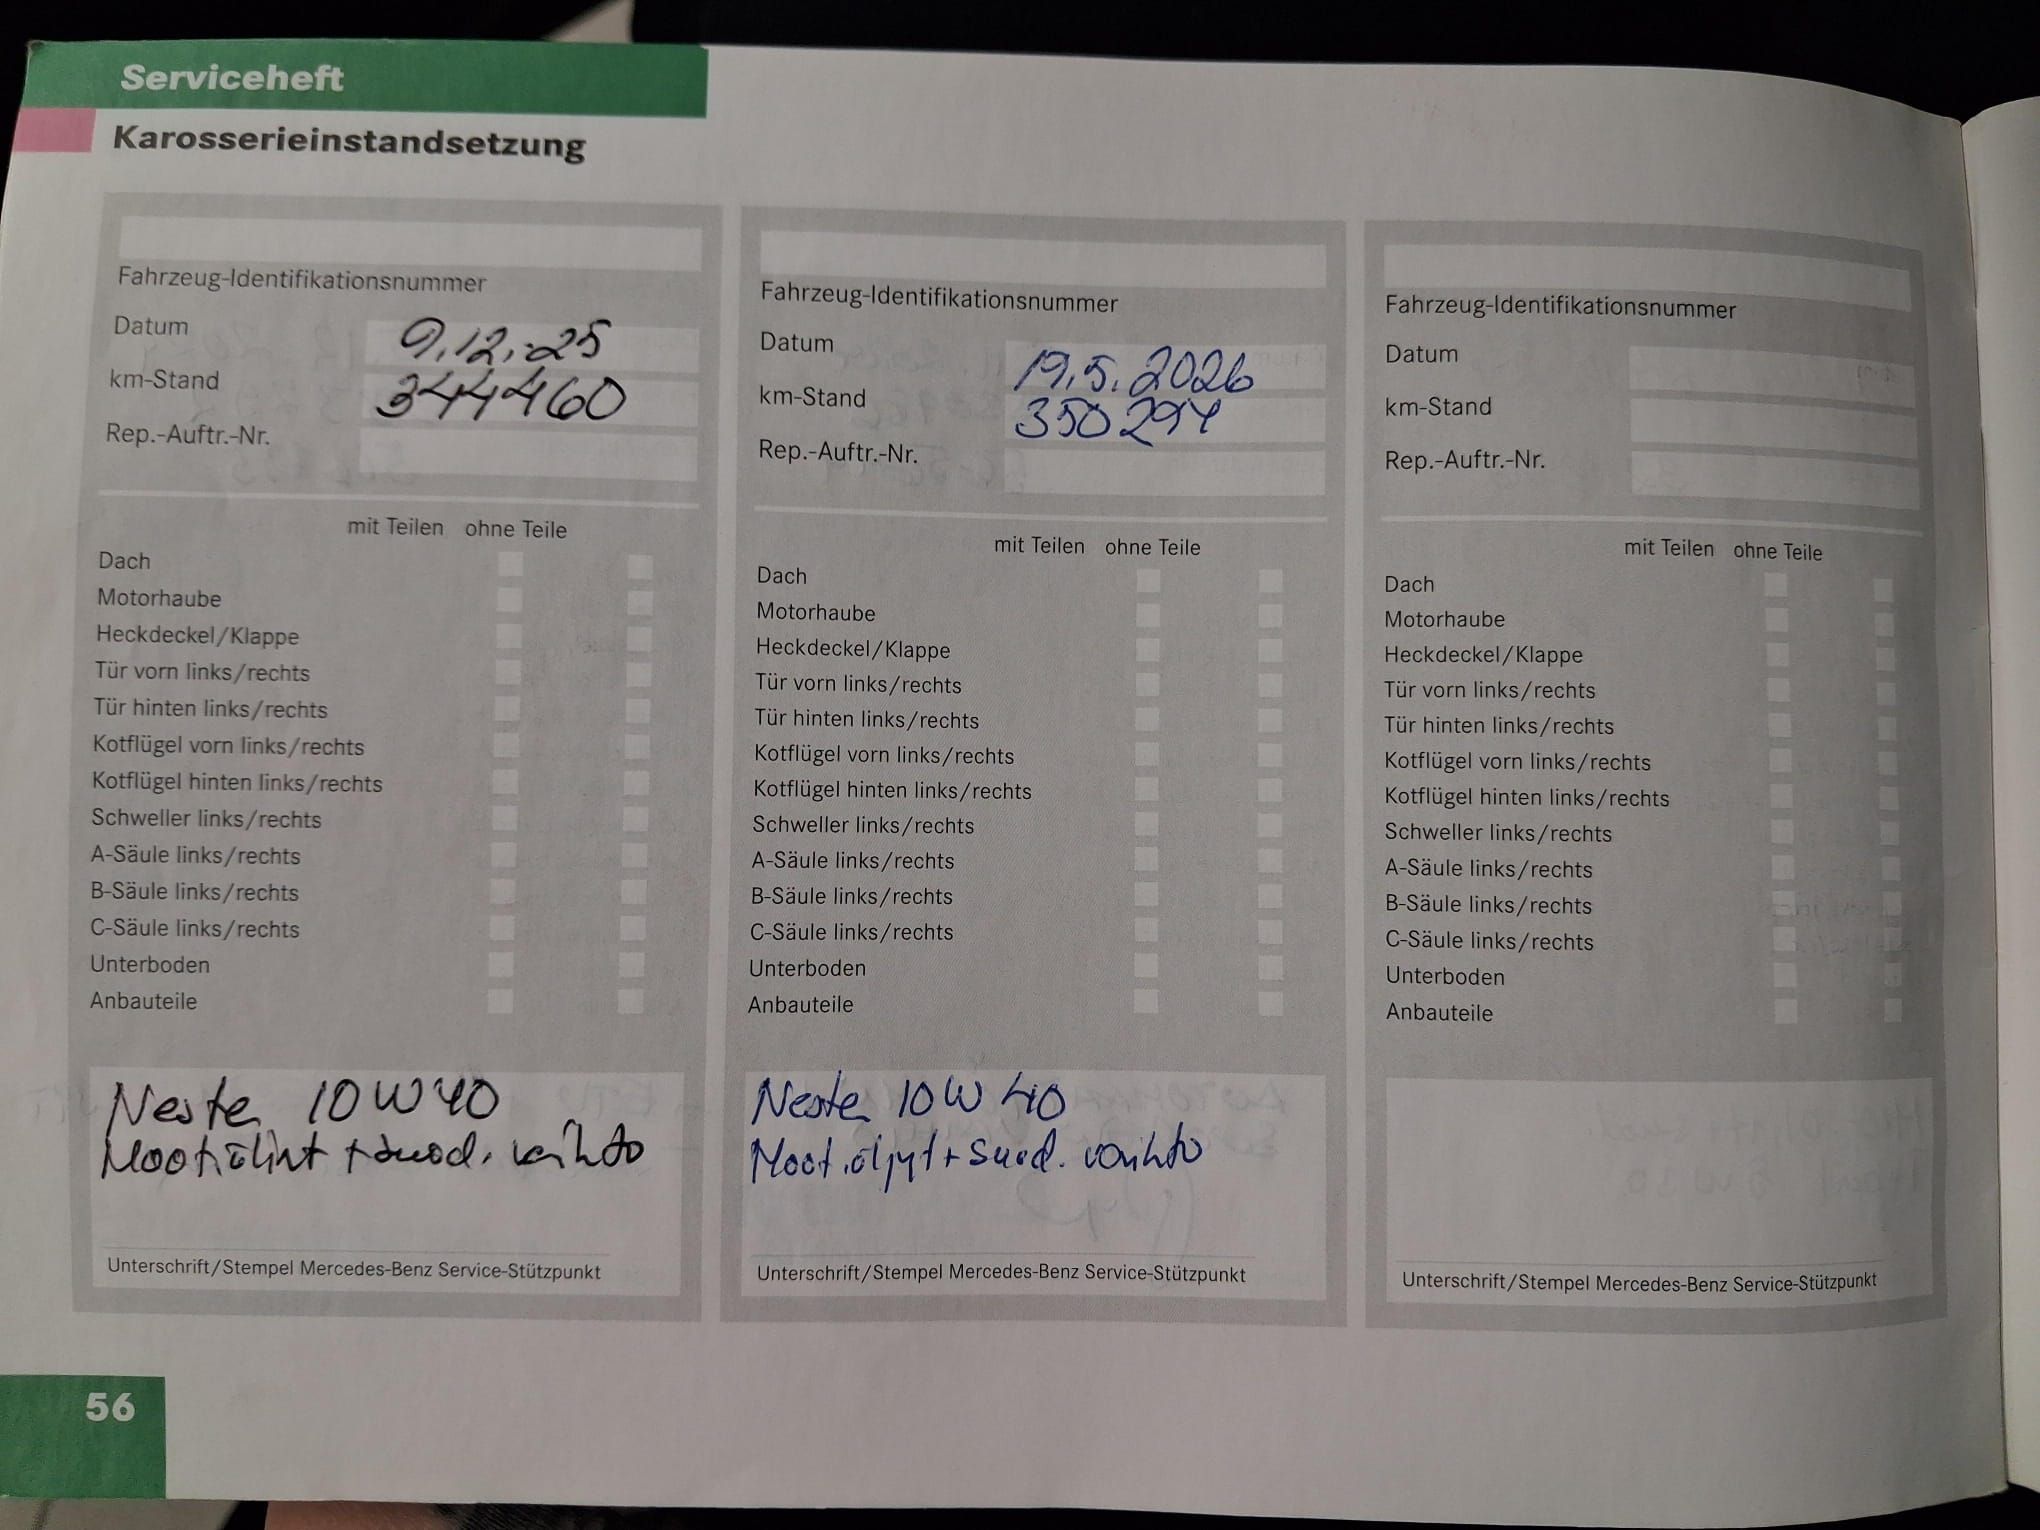 Serviceheft
Karosserieinstandsetzung
Fahrzeug-Identifikationsnummer
Datum 9.12.-25
km-Stand 344460
Rep.-Auftr.-Nr.
mit Teilen ohne Teile
Dach
Motorhaube
Heckdeckel/Klappe
Tür vorn links/rechts
Tür hinten links/rechts
Kotflügel vorn links/rechts
Kotflügel hinten links/rechts
Schweller links/rechts
A-Säule links/rechts
B-Säule links/rechts
C-Säule links/rechts
Unterboden
Anbauteile
Neste 10W40
+ suod. vaihto
Unterschrift/Stempel Mercedes-Benz Service-Stützpunkt
Fahrzeug-Identifikationsnummer
Datum 19.5.2026
km-Stand 350294
Rep.-Auftr.-Nr.
mit Teilen ohne Teile
Dach
Motorhaube
Heckdeckel/Klappe
Tür vorn links/rechts
Tür hinten links/rechts
Kotflügel vorn links/rechts
Kotflügel hinten links/rechts
Schweller links/rechts
A-Säule links/rechts
B-Säule links/rechts
C-Säule links/rechts
Unterboden
Anbauteile
Neste 10W40
Moot.öljyt + suod. vaihto
Unterschrift/Stempel Mercedes-Benz Service-Stützpunkt
Fahrzeug-Identifikationsnummer
Datum
km-Stand
Rep.-Auftr.-Nr.
mit Teilen ohne Teile
Dach
Motorhaube
Heckdeckel/Klappe
Tür vorn links/rechts
Tür hinten links/rechts
Kotflügel vorn links/rechts
Kotflügel hinten links/rechts
Schweller links/rechts
A-Säule links/rechts
B-Säule links/rechts
C-Säule links/rechts
Unterboden
Anbauteile
Unterschrift/Stempel Mercedes-Benz Service-Stützpunkt
56